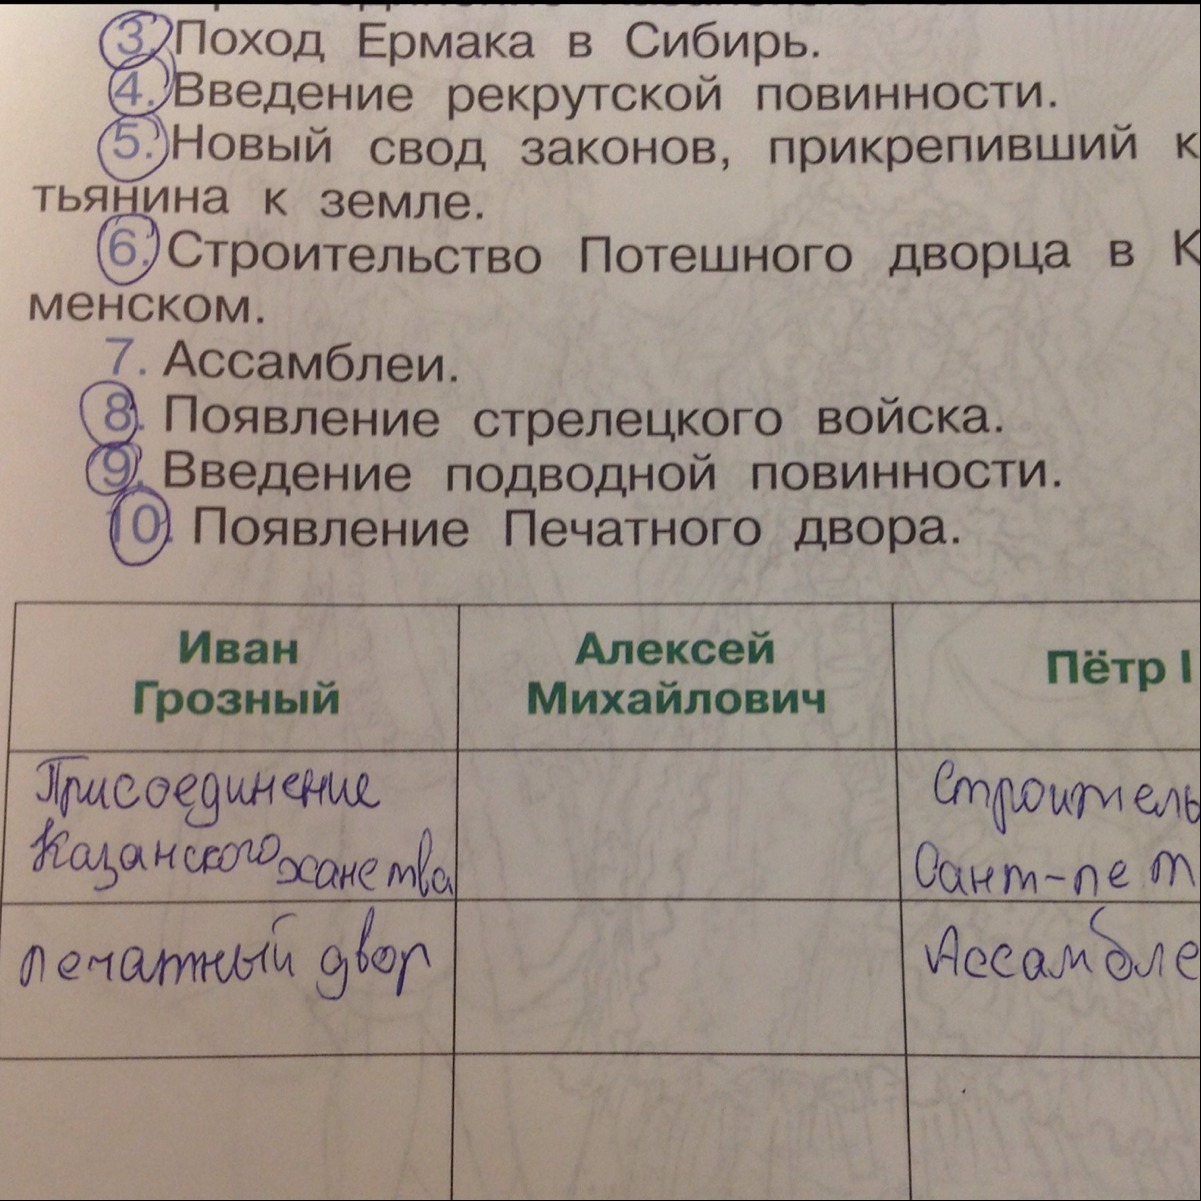 3. Поход Ермака в Сибирь.
4. Введение рекрутской повинности.
5. Новый свод законов, прикрепивший к
тьянина к земле.
6. Строительство Потешного дворца в К
менском.
7. Ассамблеи.
8. Появление стрелецкого войска.
9. Введение подводной повинности.
10. Появление Печатного двора.
Иван
Грозный
Алексей
Михайлович
Пётр I
Присоединение
Казанского ханства
Строитель
Сант-пет
печатный двор
Ассамбле